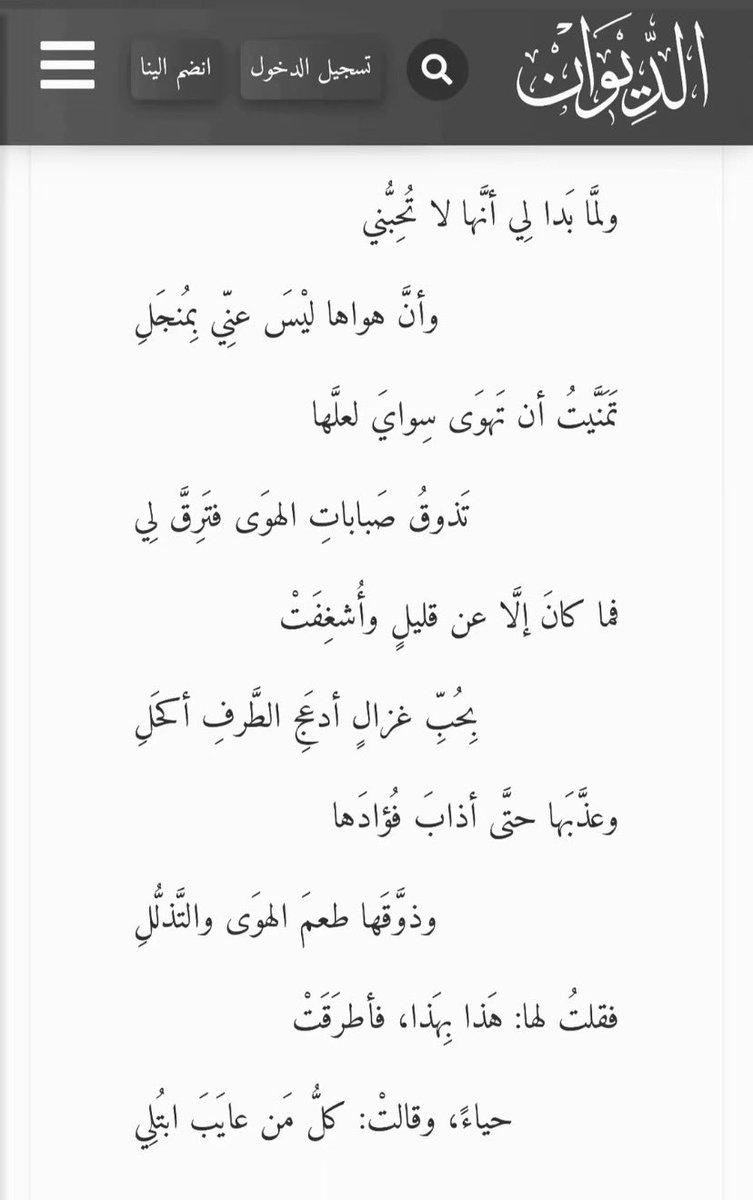 الدِّيوَان
تسجيل الدخول
انضم الينا
ولمَّا بَدا لِي أنَّها لا تُحِبُّني
وأنَّ هواها ليْسَ عنِّي بِمُنجَلِ
تَمَنَّيتُ أن تَهوَى سِوايَ لعلَّها
تَذوقُ صَباباتِ الهوَى فتَرِقَّ لِي
فما كانَ إلَّا عن قليلٍ وأُشغِفَتْ
بِحُبِّ غزالٍ أدعَجِ الطَّرفِ أكحَلِ
وعذَّبَها حتَّى أذابَ فُؤادَها
وذوَّقَها طعمَ الهوَى والتَّذلُّلِ
فقلتُ لها: هَذا بِهَذا، فأطرَقَتْ
حياءً، وقالتْ: كلُّ مَن عايَبَ ابتُلِي